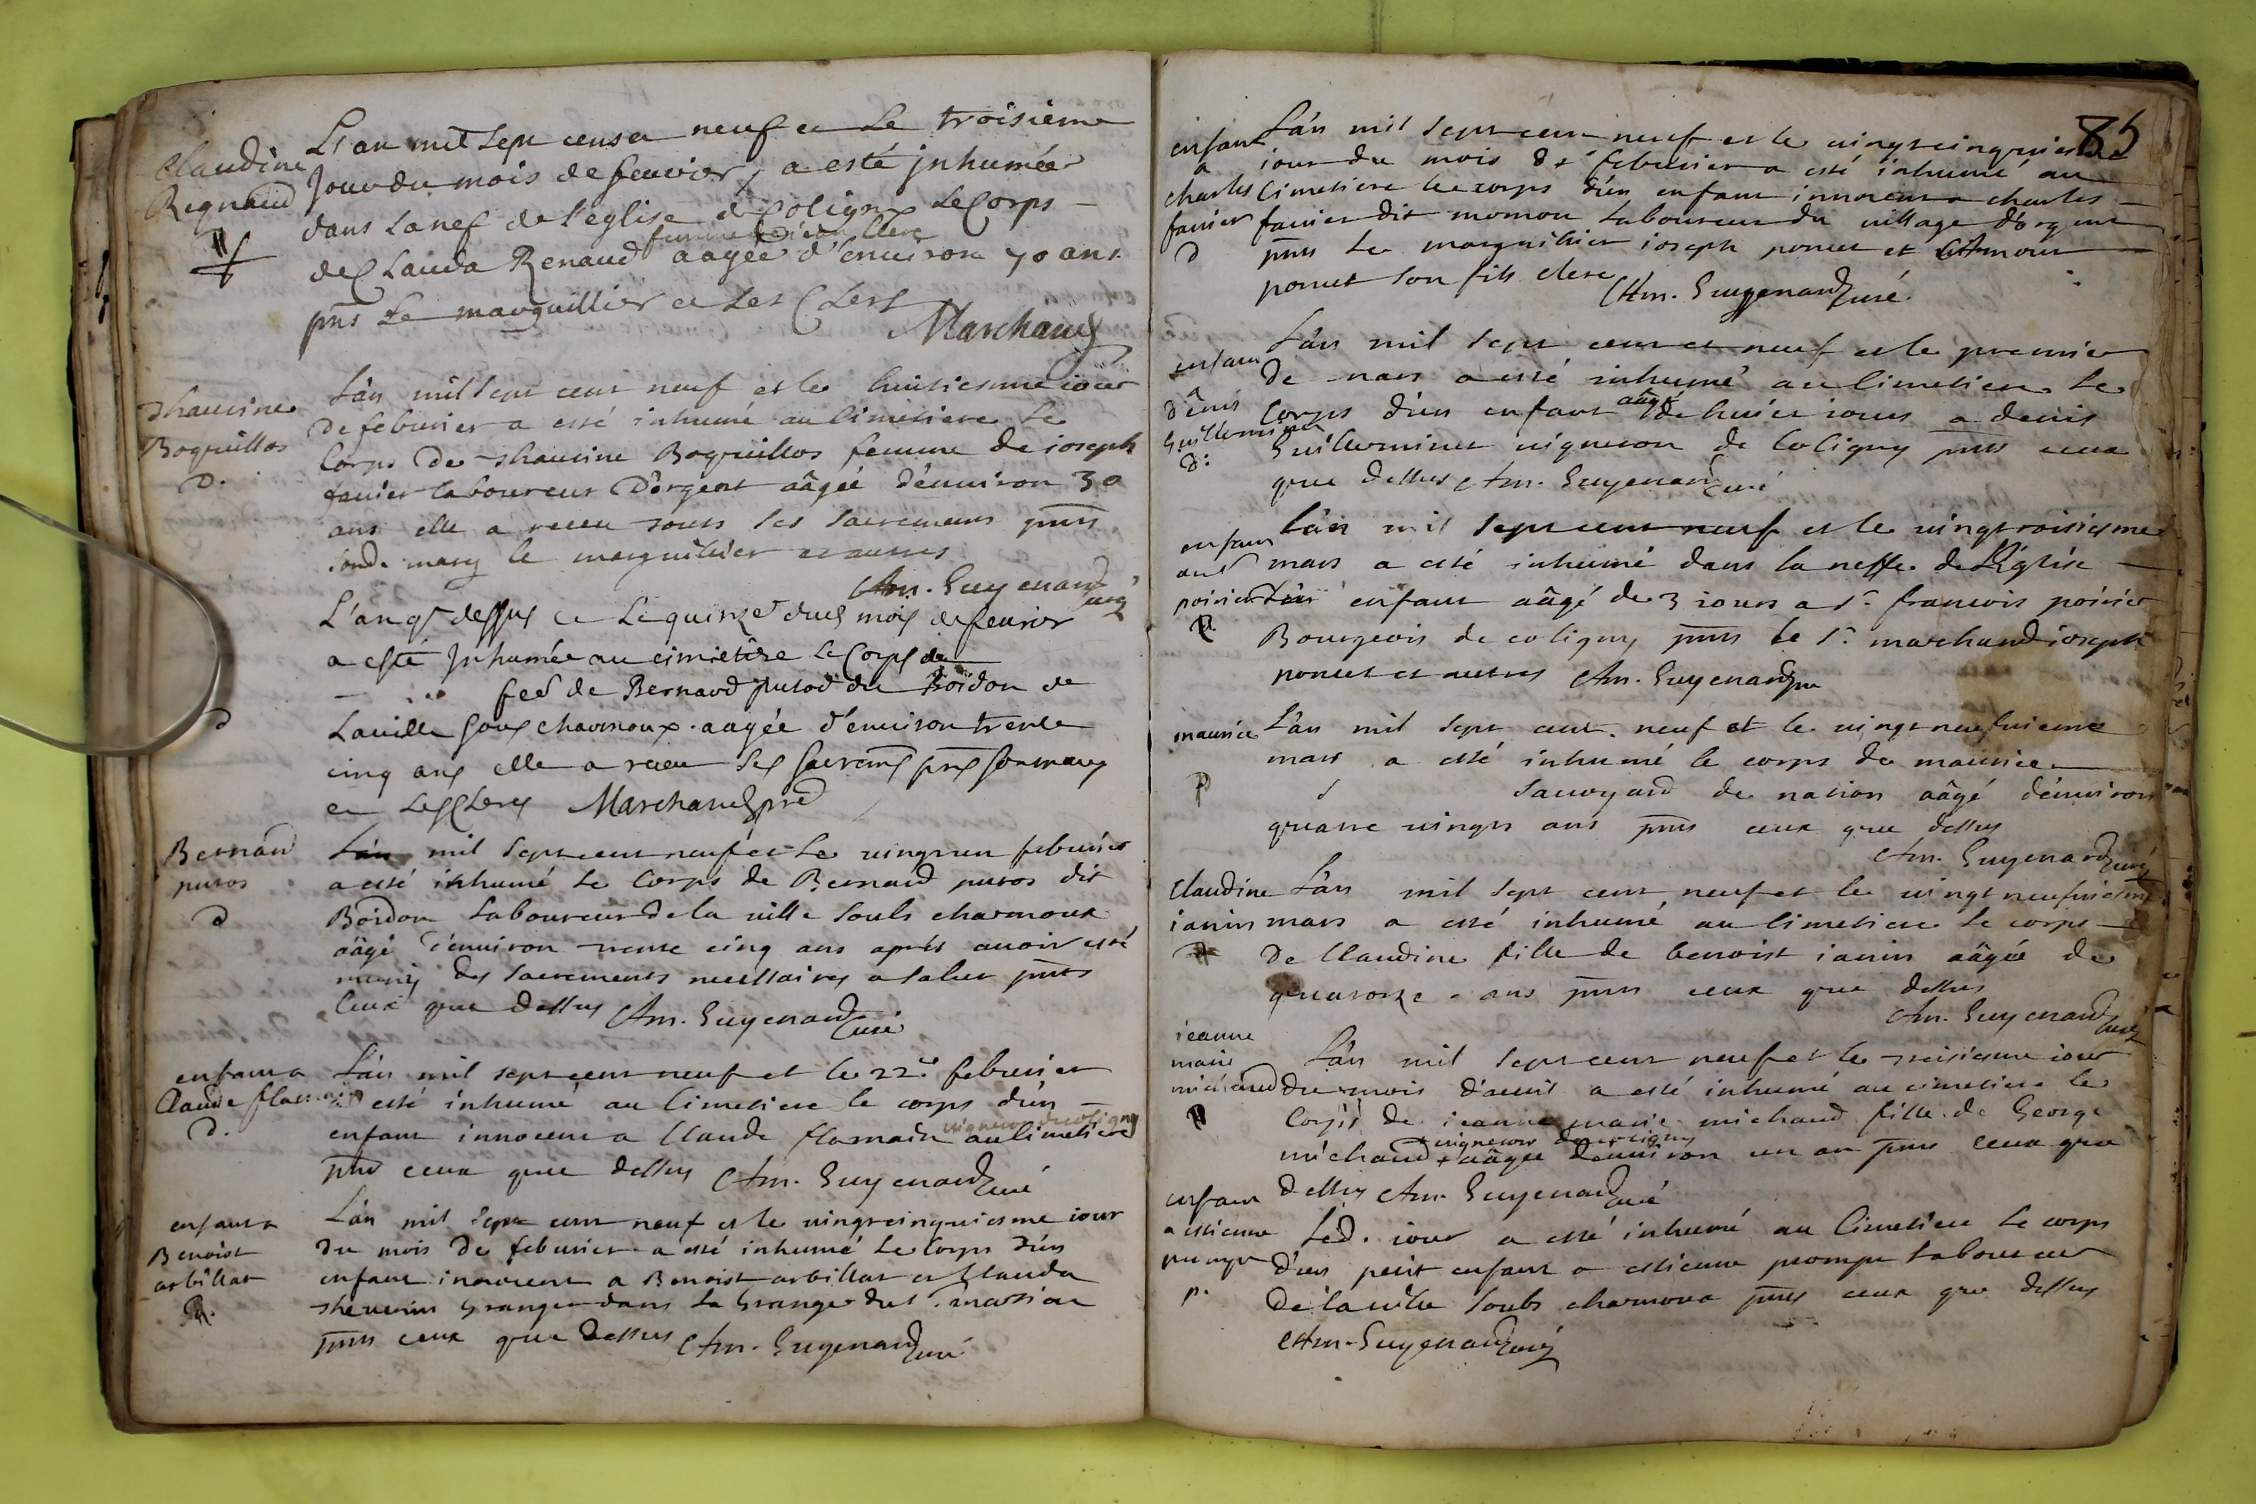 Claudine
Regnaud
L'an mil sept cens et neuf et le troisieme
Jour du mois de feuvier, a esté jnhumée
dans la nef de l'eglise de Coligny Le Corps
femme de jean Clerc
de Clauda Renaud aagée d'enuiron 70 ans.
pnts Le marguillier et Les Clers
Marchand
thauvine
Boquillos
D.
L'an mil sept cent neuf et le huitiesme iour
de feburier a esté inhumé au Cimetiere Le
Corps de thauvine Boquillos femme de ioseph
fauier laboureur D'orgent aâgée d'enuiron 30
ans elle a receu tous les sacremens pnts
sond. mary le marguillier et autres
Am. Guyenard curé
L'an q^r dessus et Le quinze dud mois de feurier
a esté Jnhumée au cimetière Le Corps de
feé de Bernard putod du Boidon de
D
Lauille sous charmoux aagée d'enuiron trente
cinq ans elle a receu les sacremts pnts son mary
et Les Clers Marchand pre
Bernard
putos
D
L'an mil sept cent neuf et Le uingt un feburier
a esté inhumé Le Corps de Bernard putos dit
Boidon Laboureur de la uille soubs charmoux
aâgé d'enuiron trente cinq ans aprés auoir esté
muny des sacrements necessaires a salut pnts
Ceux que dessus Am. Guyenard curé
enfant a
Claude flamain
D.
L'an mil sept cent neuf et le 22e feburier
a esté inhumé au Cimetiere le corps d'un
vigneron de Coligny
enfant innocent a Claude flamain au Cimetiere
pnts ceux que dessus Am. Guyenard curé
enfant a
Benoist
arbillat
L'an mil sept cent neuf et le uingt cinquiesme iour
du mois de feburier a esté inhumé Le Corps d'un
enfant innocent a Benoist arbillat et Clauda
theuenin Granger dans La Grange du
pnts ceux que dessus Am. Guyenard curé
85
enfant
a
charles
fauier
D
L'an mil sept cent neuf et le uingt cinquiesme
iour du mois de feburier a esté inhumé au
Cimetiere le corps d'un enfant innocent a charles
fauier dit momon Laboureur du uillage d'orgent
pnts Le marguillier ioseph poncet et Amour
poncet son fils clerc
Am. Guyenard curé.
enfant
denis
Guilleminet
D.
L'an mil sept cent et neuf et le premier
de mars a esté inhumé au Cimetiere Le
Corps d'un enfant aâgé de huict iours a denis
Guilleminet uigneron de Coligny pnts ceux
que dessus Am. Guyenard curé
enfant
au Sr
poirier
L'an mil sept cent neuf et le uingt troisiesme
mars a esté inhumé dans la neffe de L'Eglise
enfant aâgé de 3 iours a Sr. francois poirier
Bourgeois de coligny pnts Le Sr. marchand ioseph
poncet et autres Am. Guyenard
maurice
P
L'an mil sept cent neuf et le uingt neufuieme
mars a esté inhumé le corps de maurice
sauoyard de nation aâgé d'enuiron
quatre uingts ans pnts ceux que dessus
Am. Guyenard curé
Claudine
ianin
L'an mil sept cent neuf et le uingt neufuiesme
mars a esté inhumé au Cimetiere Le corps
de Claudine fille de benoist ianin aâgée de
quatorze ans pnts ceux que dessus
Am. Guyenard curé
ieanne
marie
michaud
L'an mil sept cent neuf et le treisieme iour
du mois d'auril a esté inhumé au cimetiere le
Corps de ieanne marie michaud fille de George
uigneron de coligny
michaud aâgée d'enuiron un an pnts ceux que
dessus Am. Guyenard curé
enfant
a estienne
prompt
p.
Led. iour a esté inhumé au Cimetiere Le corps
d'un petit enfant a estienne prompt Laboureur
de la uille soubs charmoux pnts ceux que dessus
Am. Guyenard curé